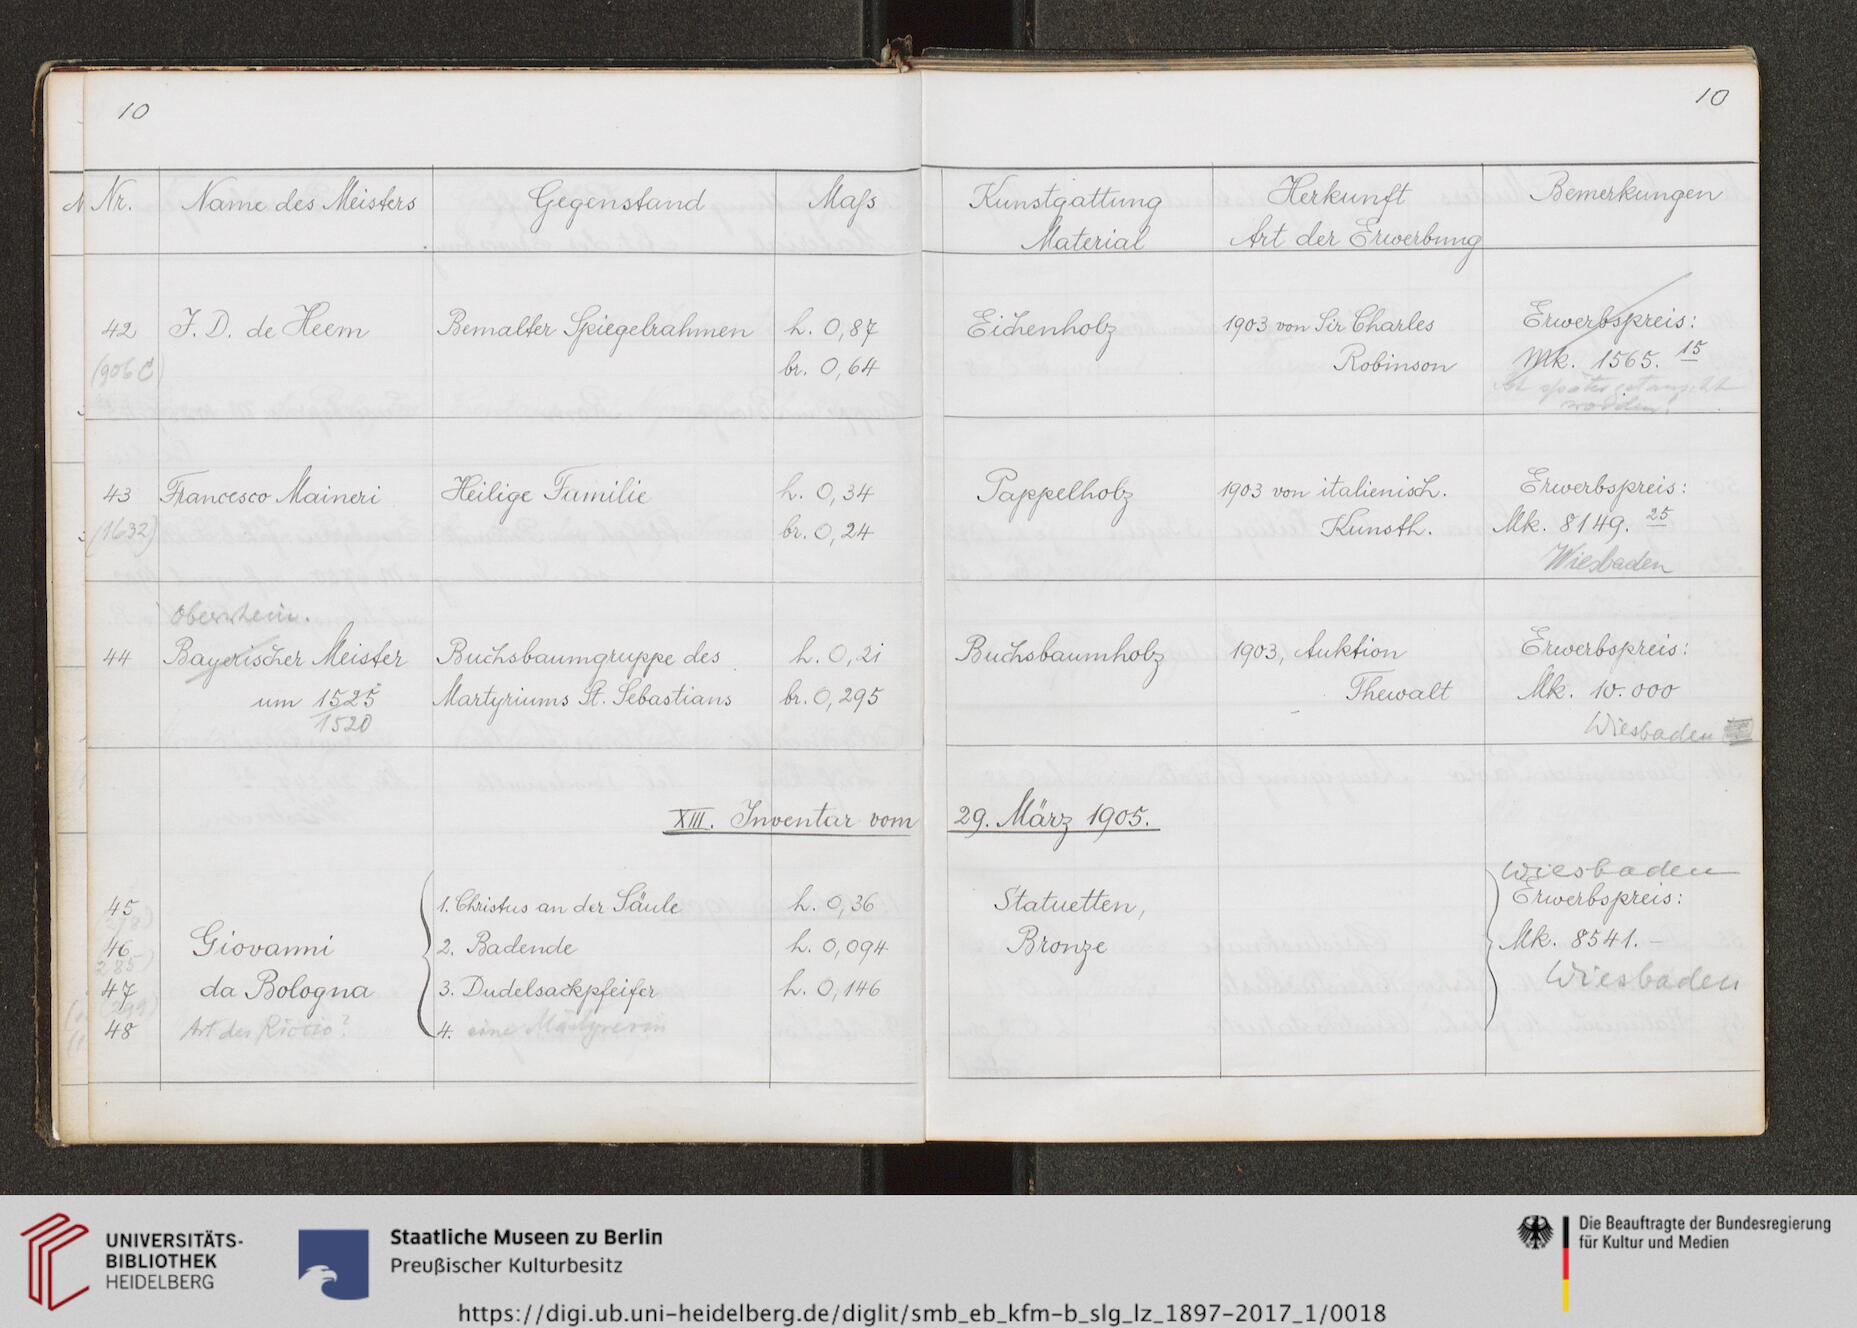 10
10
Nr. Name des Meisters Gegenstand Maß Kunstgattung Material Herkunft Art der Erwerbung Bemerkungen
42 J. D. de Heem Bemalter Spiegelrahmen h. 0,87 Eichenholz 1903 von Sir Charles Erwerbspreis:
(906 C) br. 0,64 Robinson Mk. 1565. 15
später
worden!
43 Francesco Maineri Heilige Familie h. 0,34 Pappelholz 1903 von italienisch. Erwerbspreis:
(1632) br. 0,24 Kunsth. Mk. 8149. 25
Wiesbaden
Oberrhein.
44 Bayerischer Meister Buchsbaumgruppe des h. 0,21 Buchsbaumholz 1903, Auktion Erwerbspreis:
um 1525 Martyriums St. Sebastians br. 0,295 Thewalt Mk. 10.000
1520 Wiesbaden
XIII. Inventar vom 29. März 1905.
Wiesbaden
45 1. Christus an der Säule h. 0,36 Statuetten, Erwerbspreis:
46 Giovanni 2. Badende h. 0,094 Bronze Mk. 8541.–
285) Wiesbaden
47 da Bologna 3. Dudelsackpfeifer h. 0,146
48 Art des Riccio? 4. eine Märtyrerin
UNIVERSITÄTS-
BIBLIOTHEK
HEIDELBERG
Staatliche Museen zu Berlin
Preußischer Kulturbesitz
Die Beauftragte der Bundesregierung
für Kultur und Medien
https://digi.ub.uni-heidelberg.de/diglit/smb_eb_kfm-b_slg_lz_1897-2017_1/0018